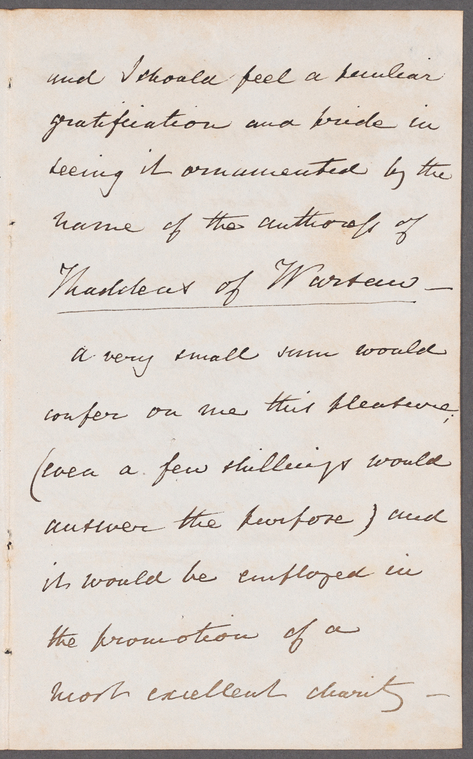 and I should feel a peculiar
gratification and pride in
seeing it ornamented by the
name of the authoress of
Thaddeus of Warsaw —
a very small sum would
confer on me this pleasure;
(even a few shillings would
answer the purpose) and
it would be employed in
the promotion of a
most excellent charity —